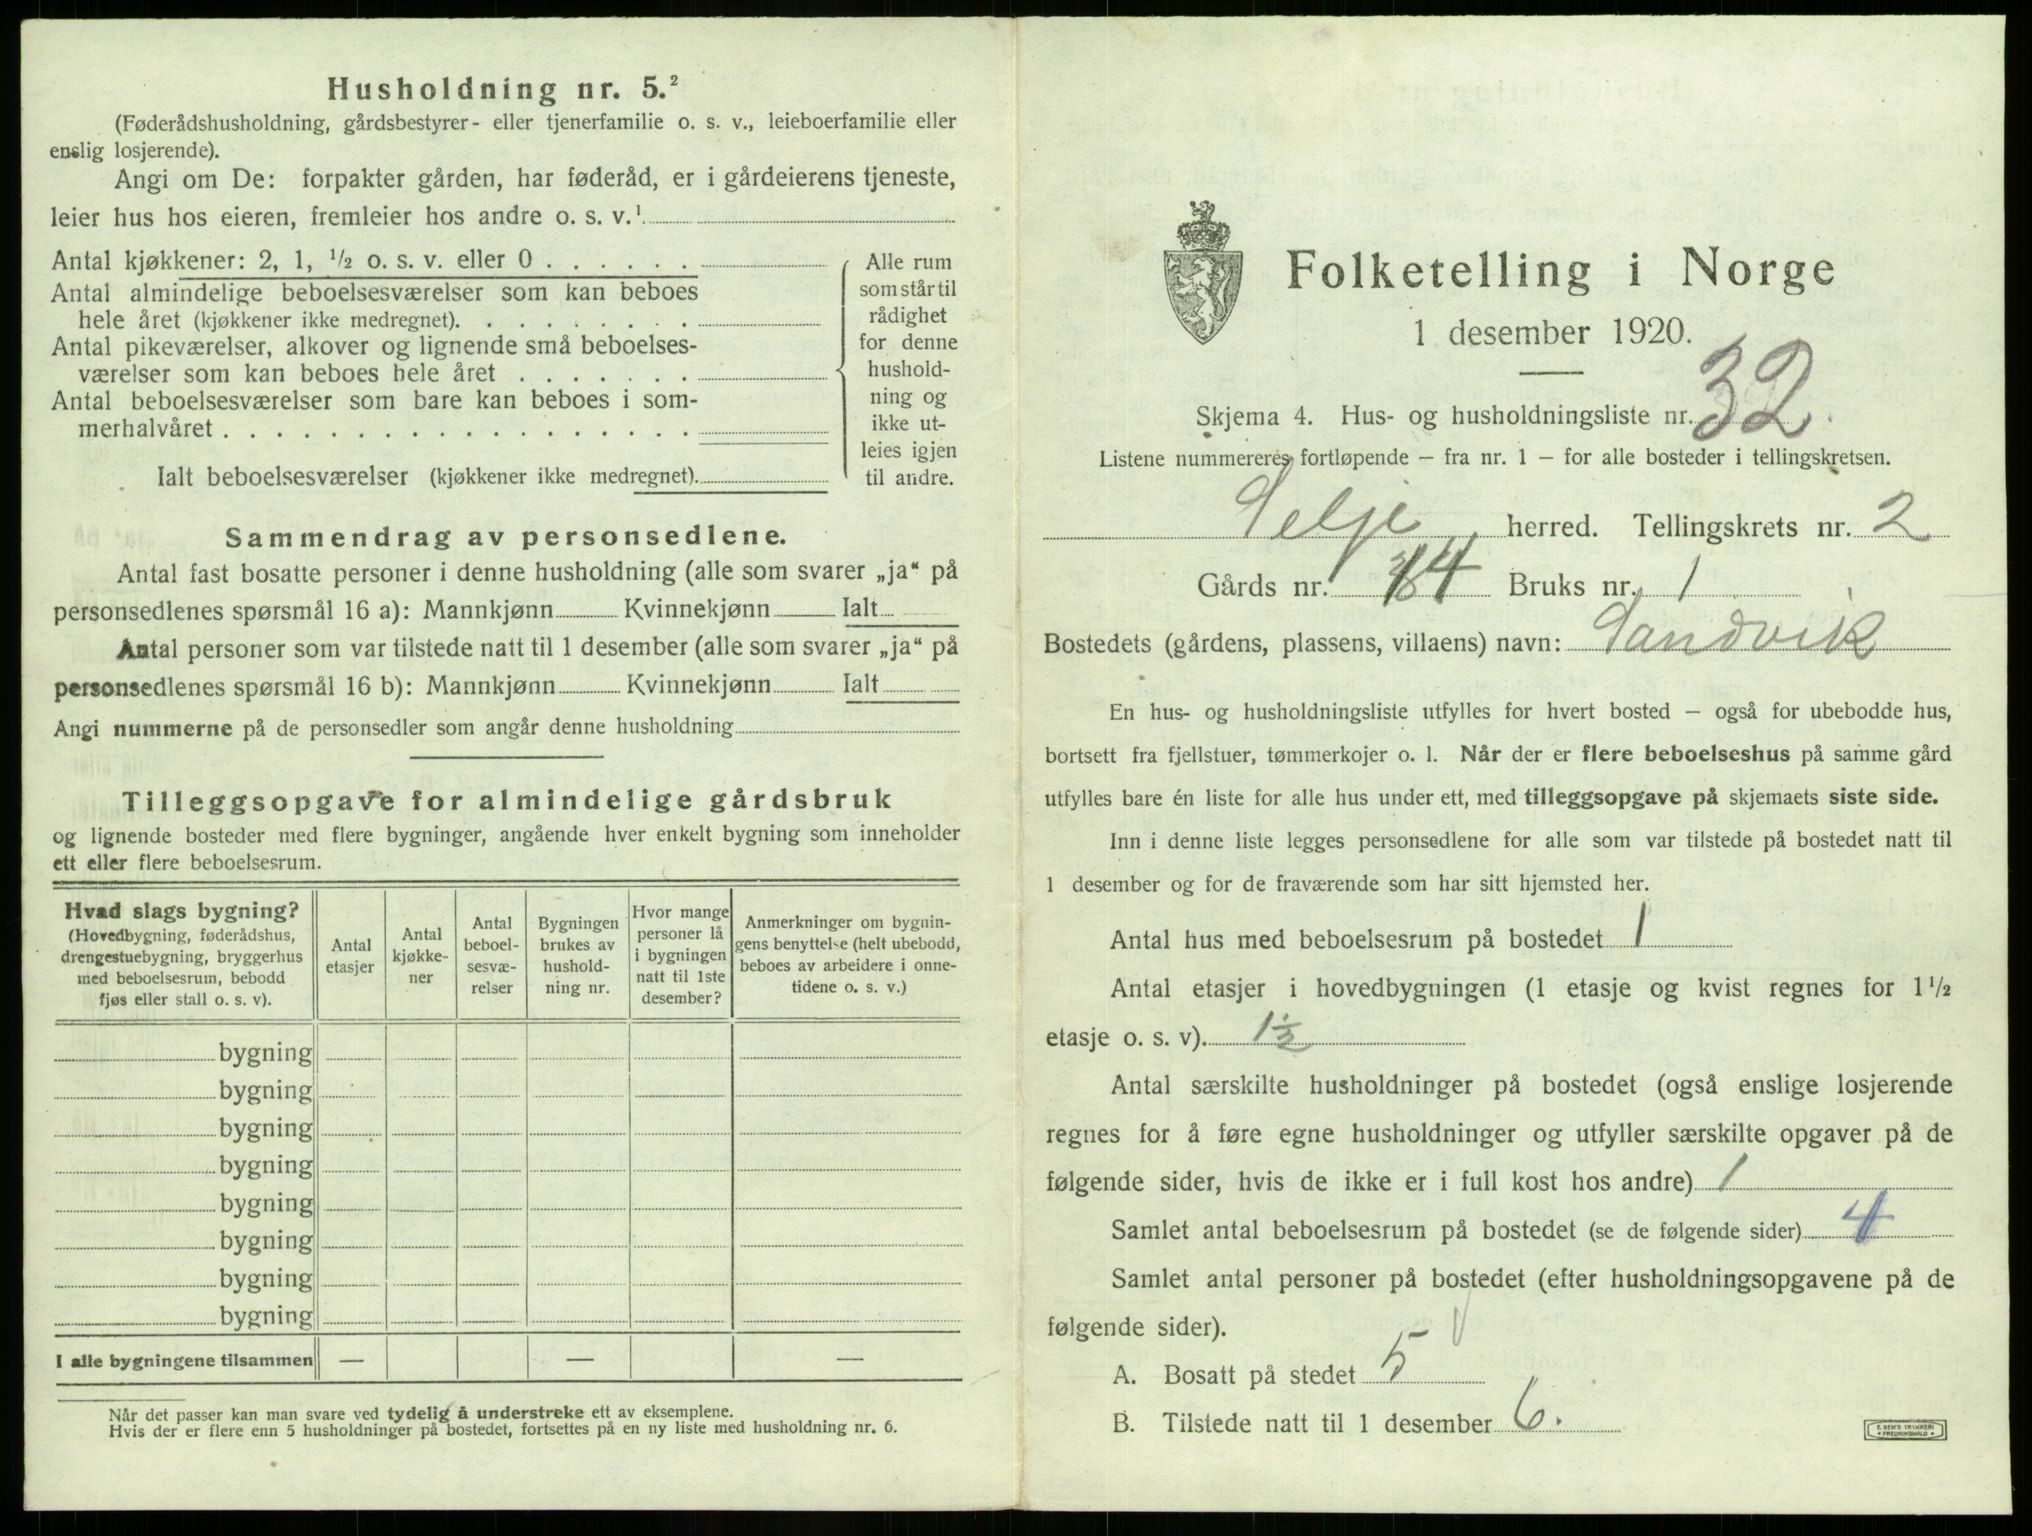 Husholdning nr. 5.²
(Føderådshusholdning, gårdsbestyrer- eller tjenerfamilie o. s. v., leieboerfamilie eller
enslig losjerende).
Angi om De: forpakter gården, har føderåd, er i gårdeierens tjeneste,
leier hus hos eieren, fremleier hos andre o. s. v.¹
Antal kjøkkener: 2, 1, ½ o. s. v. eller 0 . . . . . .
Antal almindelige beboelsesværelser som kan beboes
hele året (kjøkkener ikke medregnet). . . . . . . . .
Antal pikeværelser, alkover og lignende små beboelses-
værelser som kan beboes hele året . . . . . . .
Antal beboelsesværelser som bare kan beboes i som-
merhalvåret . . . . . . . . . . . . . . . . . .
Ialt beboelsesværelser (kjøkkener ikke medregnet).
Alle rum
som står til
rådighet
for denne
hushold-
ning og
ikke ut-
leies igjen
til andre.
Sammendrag av personsedlene.
Antal fast bosatte personer i denne husholdning (alle som svarer „ja“ på
personsedlenes spørsmål 16 a): Mannkjønn Kvinnekjønn Ialt
Antal personer som var tilstede natt til 1 desember (alle som svarer „ja“ på
personsedlenes spørsmål 16 b): Mannkjønn Kvinnekjønn Ialt
Angi nummerne på de personsedler som angår denne husholdning
Tilleggsopgave for almindelige gårdsbruk
og lignende bosteder med flere bygninger, angående hver enkelt bygning som inneholder
ett eller flere beboelsesrum.
Hvad slags bygning?
(Hovedbygning, føderådshus,
drengestuebygning, bryggerhus
med beboelsesrum, bebodd
fjøs eller stall o. s. v).
Antal
etasjer
Antal
kjøkke-
ner
Antal
beboel-
sesvæ-
relser
Bygningen
brukes av
hushold-
ning nr.
Hvor mange
personer lå
i bygningen
natt til 1ste
desember?
Anmerkninger om bygnin-
gens benyttelse (helt ubebodd,
beboes av arbeidere i onne-
tidene o. s. v.)
bygning
bygning
bygning
bygning
bygning
bygning
bygning
bygning
I alle bygningene tilsammen — — —
Når det passer kan man svare ved tydelig å understreke ett av eksemplene.
Hvis der er flere enn 5 husholdninger på bostedet, fortsettes på en ny liste med husholdning nr. 6.
Folketelling i Norge
1 desember 1920.
Skjema 4. Hus- og husholdningsliste nr. 32
Listene nummereres fortløpende – fra nr. 1 – for alle bosteder i tellingskretsen.
Selje herred. Tellingskrets nr. 2
Gårds nr. 14 Bruks nr. 1
Bostedets (gårdens, plassens, villaens) navn: Sandvik
En hus- og husholdningsliste utfylles for hvert bosted – også for ubebodde hus,
bortsett fra fjellstuer, tømmerkojer o. l. Når der er flere beboelseshus på samme gård
utfylles bare én liste for alle hus under ett, med tilleggsopgave på skjemaets siste side.
Inn i denne liste legges personsedlene for alle som var tilstede på bostedet natt til
1 desember og for de fraværende som har sitt hjemsted her.
Antal hus med beboelsesrum på bostedet 1
Antal etasjer i hovedbygningen (1 etasje og kvist regnes for 1½
etasje o. s. v). 1½
Antal særskilte husholdninger på bostedet (også enslige losjerende
regnes for å føre egne husholdninger og utfyller særskilte opgaver på de
følgende sider, hvis de ikke er i full kost hos andre) 1
Samlet antal beboelsesrum på bostedet (se de følgende sider) 4
Samlet antal personer på bostedet (efter husholdningsopgavene på de
følgende sider).
A. Bosatt på stedet 5
B. Tilstede natt til 1 desember 6.